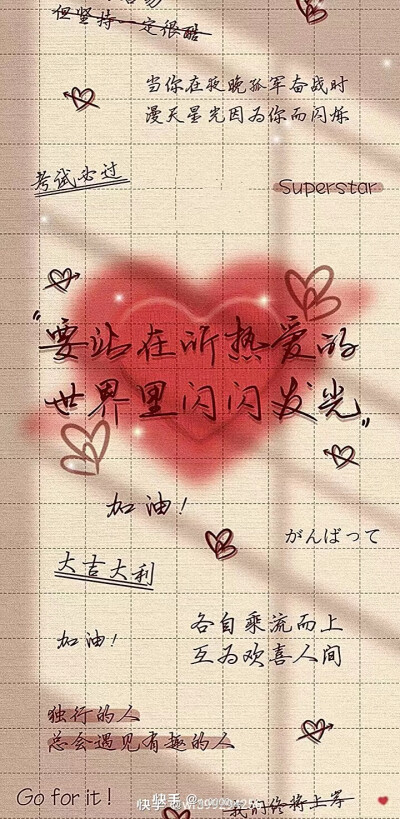 但坚持一定很酷
当你在夜晚孤军奋战时
漫天星光因为你而闪烁
考试必过
Superstar
"要站在所热爱的
世界里闪闪发光"
加油!
がんばって
大吉大利
各自乘流而上
加油!
互为欢喜人间
独行的人
总会遇见有趣的人
Go for it!
快手
我们终将上岸